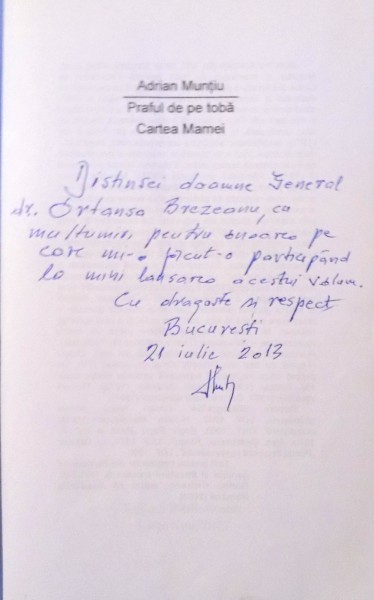 Adrian Munțiu
Praful de pe tobă
Cartea Mamei
Distinsei doamne General
dr. Ortansa Brezeanu, cu
mulțumiri pentru onoarea pe
care mi-a făcut-o participând
la mini lansarea acestui volum.
Cu dragoste și respect,
București
21 iulie 2013